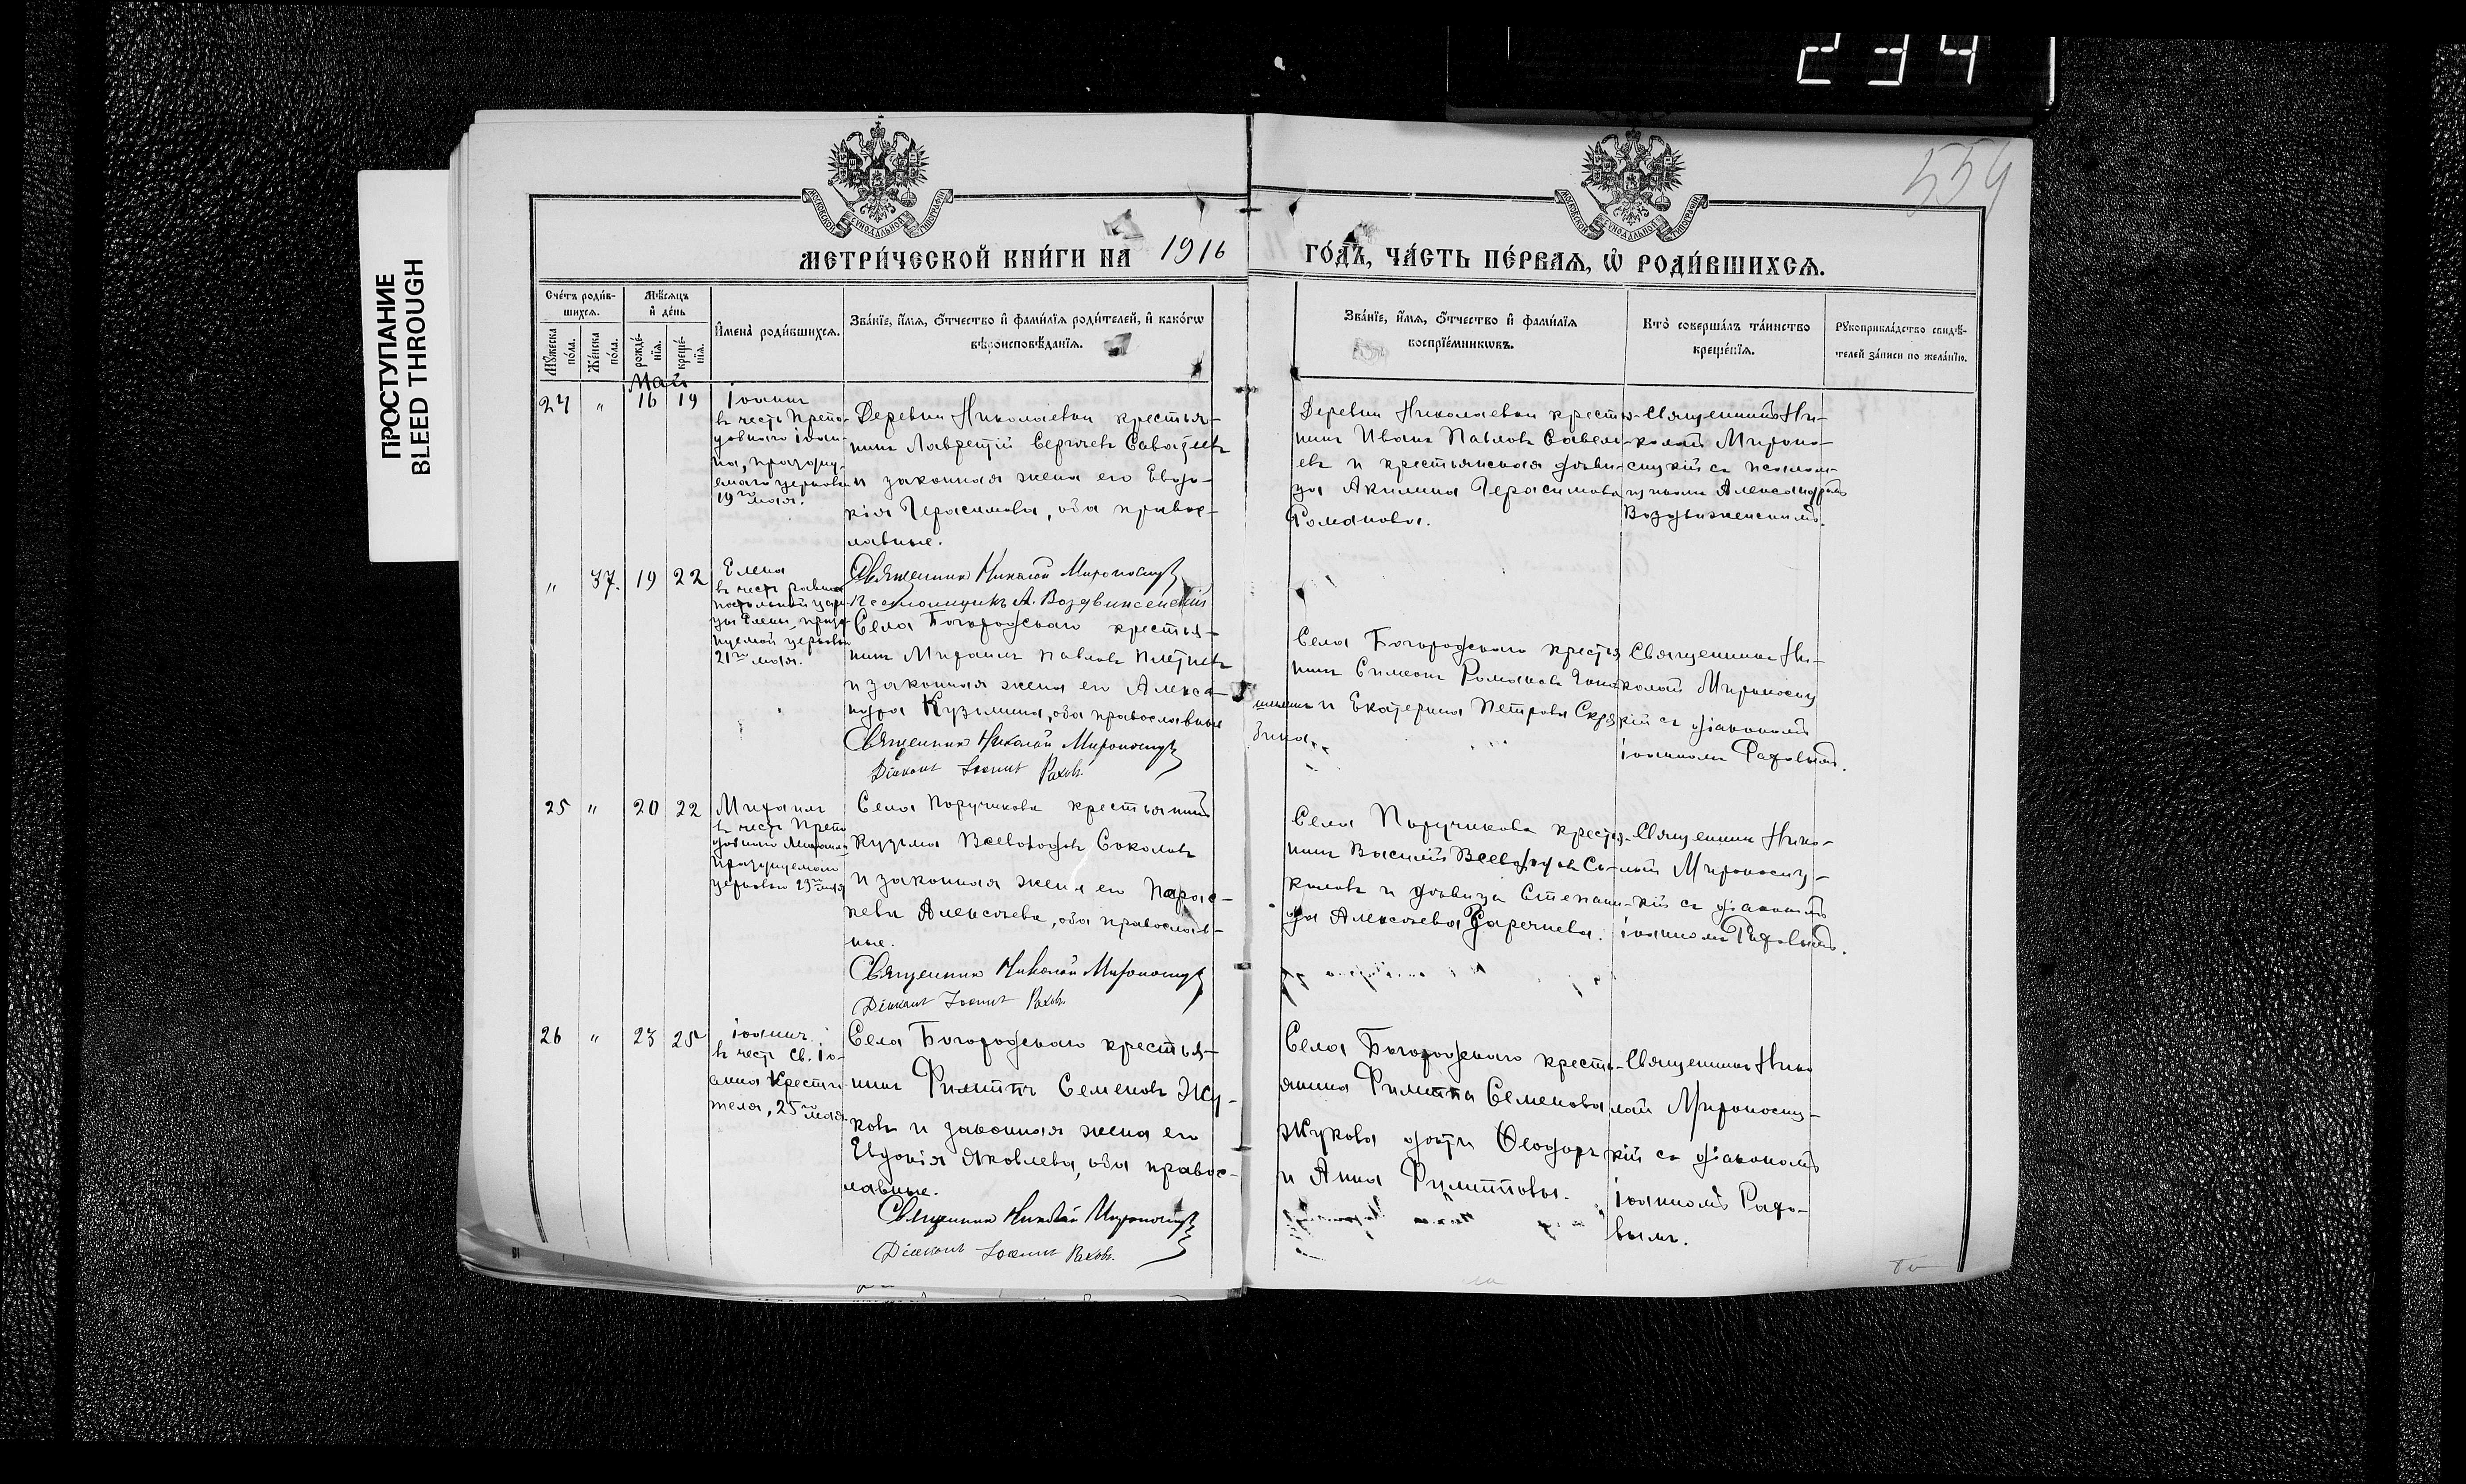 234
ПРОСТУПАНИЕ
BLEED THROUGH
554
МОСКОВСКОЙ СѴНОДАЛЬНОЙ ТИПОГРАФІИ
МОСКОВСКОЙ СѴНОДАЛЬНОЙ ТИПОГРАФІИ
МЕТРИ́ЧЕСКОЙ КНИ́ГИ НА 1916 ГО́ДЪ, ЧА́СТЬ ПЕ́РВАЯ, Ѡ РОДИ́ВШИХСЯ.
Сче́тъ роди́в-
шихся.
Мѣ́сяцъ
и́ де́нь
Мꙋ́жеска
по́ла.
Же́нска
по́ла.
рожде́-
нїя.
креще́-
нїя.
И҆мена̀ роди́вшихся.
Зва́нїе, и҆́мя, ѻ҆́тчество и҆ фами́лїя роди́телей, и҆ како́гѡ
вѣроисповѣ́данїя.
Зва́нїе, и҆́мя, ѻ҆́тчество и҆ фами́лїя
воспрїе́мникѡвъ.
Кто̀ соверша́лъ та́инство
креще́нїя.
Рꙋкоприкла́дство свидѣ́-
телей за́писи по жела́нїю.
Май
24 " 16 19
Іоаннъ
въ честь Препо-
добнаго Іоан-
на, праздну-
емаго церковью
19го мая.
Деревни Николаевки крестья-
нинъ Лаврентій Сергѣевъ
и законная жена его Евдо-
кія Герасимова, оба правос-
лавные.
Священникъ Николай Мироносицк
Псаломщикъ А. Воздвиженскій
Деревни Николаевки крестья-
нинъ Иванъ Павловъ Савель-
евъ и крестьянская дѣви-
ца Акилина Герасимова
Романова.
Священникъ Ни-
колай Мироно-
сицкій съ псалом-
щикомъ Александромъ
Воздвиженскимъ.
" 37. 19 22
Елена
въ честь равно-
апостольной цари-
цы Елены, празд-
нуемой церковью
21го мая.
Села Богородскаго крестья-
нинъ Михаилъ Павловъ Плетневъ
и законная жена его Алекса-
ндра Кузьмина, оба православные
Священникъ Николай Мироносицк
Діаконъ Іоаннъ
Села Богородскаго крестья-
нинъ Симеонъ Романовъ
и Екатерина Петрова Скря-
бина.
Священникъ Ни-
колай Мироносиц-
кій съ діакономъ
Іоанномъ
25 " 20 22
Михаилъ
въ честь Препо-
добнаго Михаила,
празднуемаго
церковью 23го мая
Села Поручикова крестьянинъ
Кузьма Всеволодовъ Соколовъ
и законная жена его Парас-
кева Алексѣева, оба православ-
ные.
Священникъ Николай Мироносицк
Діаконъ Іоаннъ
Села Поручикова крестья-
нинъ Василій Всеволодовъ Со-
коловъ и дѣвица Степани-
да Алексѣева Заречнева.
Священникъ Нико-
лай Мироносиц-
кій съ діакономъ
Іоанномъ
26 " 23 25
Іоаннъ
въ честь Св. Іо-
анна Крести-
теля, 25го мая.
Села Богородскаго крестья-
нинъ Филиппъ Семеновъ Жу-
ковъ и законная жена его
Евдокія Яковлева, оба правос-
лавные.
Священникъ Николай Мироносицк
Діаконъ Іоаннъ
Села Богородскаго кресть-
янина Филиппа Семенова
Жукова дѣти Ѳеодоръ
и Анна Филипповы.
Священникъ Нико-
лай Мироносиц-
кій съ діакономъ
Іоанномъ
вымъ.